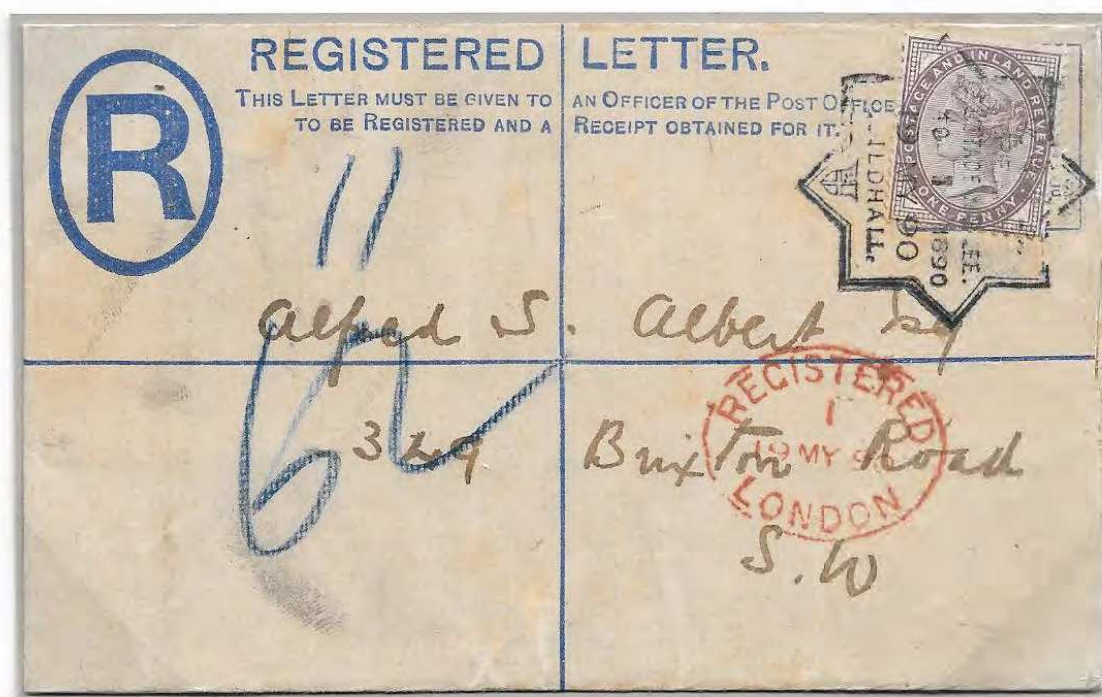 REGISTERED LETTER.
THIS LETTER MUST BE GIVEN TO AN OFFICER OF THE POST OFFICE
TO BE REGISTERED AND A RECEIPT OBTAINED FOR IT.
R
POSTAGE AND INLAND REVENUE
ONE PENNY
1890
90
11
Alfred S. Albert Esq
349 Brixton Road
S.W
REGISTERED
1
19 MY
LONDON